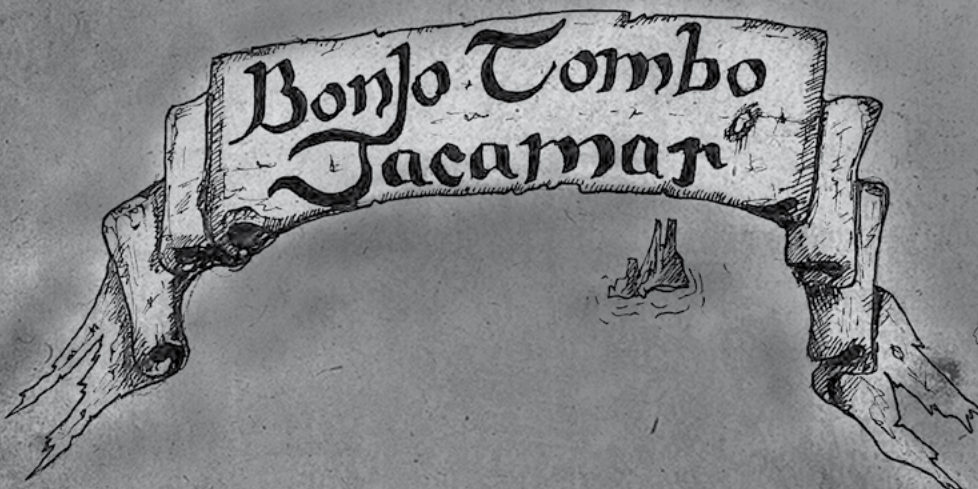 Bonjo Tombo
Jacamar